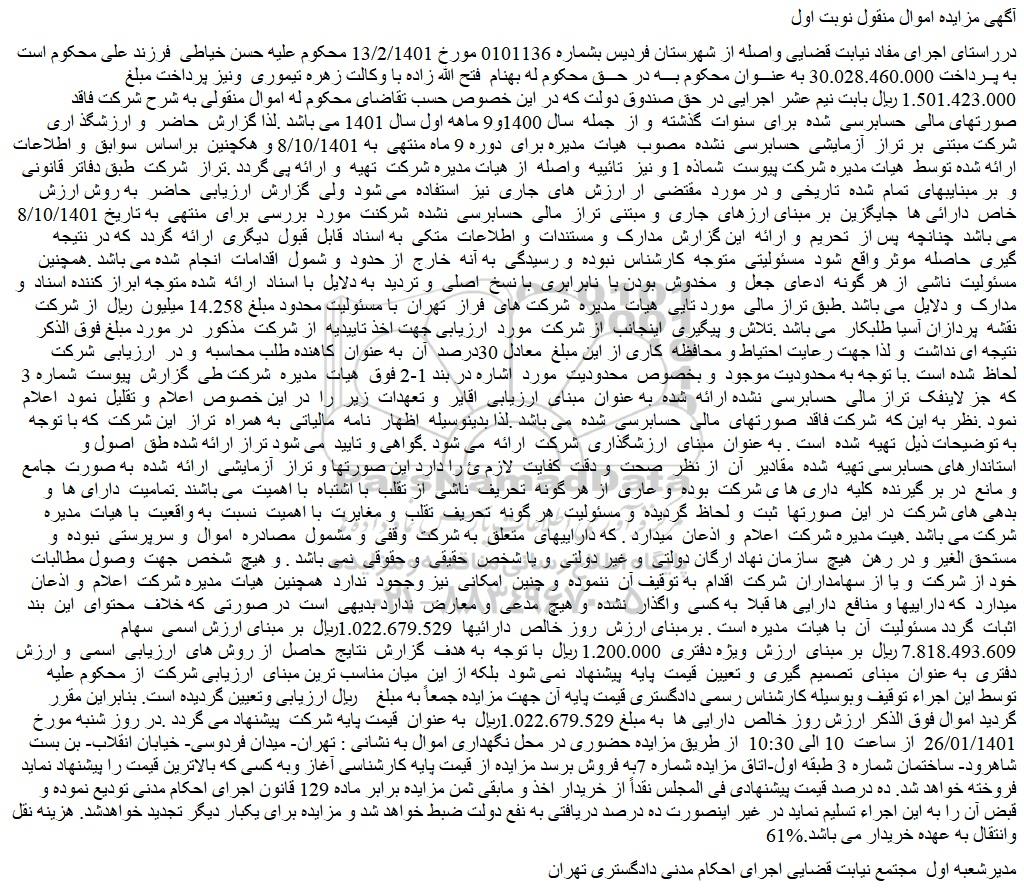 آگهی مزایده اموال منقول نوبت اول
درراستای اجرای مفاد نیابت قضایی واصله از شهرستان فردیس بشماره 0101136 مورخ 13/2/1401 محکوم علیه حسن خیاطی فرزند علی محکوم است
به پــرداخت 30.028.460.000 به عنـــوان محکوم بـــه در حـــق محکوم له بهنام فتح الله زاده با وکالت زهره تیموری ونیز پرداخت مبلغ
1.501.423.000 ریال بابت نیم عشر اجرایی در حق صندوق دولت که در این خصوص حسب تقاضای محکوم له اموال منقولی به شرح شرکت فاقد
صورتهای مالی حسابرسی شده برای سنوات گذشته و از جمله سال 1400و9 ماهه اول سال 1401 می باشد .لذا گزارش حاضر و ارزشگذ اری
شرکت مبتنی بر تراز آزمایشی حسابرسی نشده مصوب هیات مدیره برای دوره 9 ماه منتهی به 8/10/1401 و هکچنین براساس سوابق و اطلاعات
ارائه شده توسط هیات مدیره شرکت پیوست شماذه 1 و نیز تائییه واصله از هیات مدیره شرکت تهیه و ارائه پی گردد .تراز شرکت طبق دفاتر قانونی
و بر مبناییهای تمام شده تاریخی و در مورد مقتضی ار ارزش های جاری نیز استفاده می شود ولی گزارش ارزیابی حاضر به روش ارزش
خاص دارائی ها جایگزین بر مبنای ارزهای جاری و مبتنی تراز مالی حسابرسی نشده شرکنت مورد بررسی برای منتهی به تاریخ 8/10/1401
می باشد چنانچه پس از تحریم و ارائه این گزارش مدارک و مستندات و اطلاعات متکی به اسناد قابل قبول دیگری ارائه گردد که در نتیجه
گیری حاصله موثر واقع شود مسئولیتی متوجه کارشناس نبوده و رسیدگی به آنه خارج از حدود و شمول اقدامات انجام شده می باشد .همچنین
مسئولیت ناشی از هر گونه ادعای جعل و مخدوش بودن یا نابرابری با نسخ اصلی و تردید به دلایل با اسناد ارائه شده متوجه ابراز کننده اسناد و
مدارک و دلایل می باشد .طبق تراز مالی مورد تایی هیات مدیره شرکت های فراز تهران با مسئولیت محدود مبلغ 14.258 میلیون ریال از شرکت
نقشه پردازان آسیا طلبکار می باشد .تلاش و پیگیری اینجانب از شرکت مورد ارزیابی جهت اخذ تاییدیه از شرکت مذکور در مورد مبلغ فوق الذکر
نتیجه ای نداشت و لذا جهت رعایت احتیاط و محافظه کاری از این مبلغ معادل 30درصد آن به عنوان کاهنده طلب محاسبه و در ارزیابی شرکت
لحاظ شده است .با توجه به محدودیت موجود و بخصوص محدودیت مورد اشاره در بند 1-2 فوق هیات مدیره شرکت طی گزارش پیوست شماره 3
که جز لاینفک تراز مالی حسابرسی نشده ارائه شده به عنوان مبنای ارزیابی اقایر و تعهدات زیر را در این خصوص اعلام و تقلیل نمود اعلام
نمود .نظر به این که شرکت فاقد صورتهای مالی حسابرسی شده می باشد .لذا بدینوسیله اظهار نامه مالیاتی به همراه تراز این شرکت که با توجه
به توضیحات ذیل تهیه شده است . به عنوان مبنای ارزشگذاری شرکت ارائه می شود .گواهی و تایید می شود تراز ارائه شده طق اصول و
استاندارهای حسابرسی تهیه شده مقادیر آن از نظر صحت و دقت کفایت لازم ئ را دارد این صورتها و تراز آزمایشی ارائه شده به صورت جامع
و مانع در بر گیرنده کلیه داری ها ی شرکت بوده و عاری از هر گونه تحریف ناشی از تقلب یا اشتباه با اهمیت می باشند .تمامیت دارای ها و
بدهی های شرکت در این صورتها ثبت و لحاظ گردیده و مسئولیت هر گونه تحریف تقلب و مغایرت با اهمیت نسبت به واقعیت با هیات مدیره
شرکت می باشد .هیت مدیره شرکت اعلام و اذعان میدارد . که داراییهای متعلق به شرکت وقفی و مشمول مصادره اموال و سرپرستی نبوده و
مستحق الغیر و در رهن هیچ سازمان نهاد ارگان دولتی و غیر دولتی و یا شخص حقیقی و حقوقی نمی باشد . و هیچ شخص جهت وصول مطالبات
خود از شرکت و یا از سهامداران شرکت اقدام به توقیف آن ننموده و چنین امکانی نیز وجحود ندارد همچنین هیات مدیره شرکت اعلام و اذعان
میدارد که داراییها و منافع دارایی ها قبلا به کسی واگذار نشده و هیچ مدعی و معارض ندارد بدیهی است در صورتی که خلاف محتوای این بند
اثبات گردد مسئولیت آن با هیات مدیره است . برمبنای ارزش روز خالص دارائیها 1.022.679.529ریال بر مبنای ارزش اسمی سهام
7.818.493.609 ریال بر مبنای ارزش ویژه دفتری 1.200.000 ریال با توجه به هدف گزارش نتایج حاصل از روش های ارزیابی اسمی و ارزش
دفتری به عنوان مبنای تصمیم گیری و تعیین قیمت پایه پیشنهاد نمی شود بلکه از این میان مناسب ترین مبنای ارزیابی شرکت از محکوم علیه
توسط این اجراء توقیف وبوسیله کارشناس رسمی دادگستری قیمت پایه آن جهت مزایده جمعاً به مبلغ ریال ارزیابی وتعیین گردیده است. بنابراین مقرر
گردید اموال فوق الذکر ارزش روز خالص دارایی ها به مبلغ 1.022.679.529ریال به عنوان قیمت پایه شرکت پیشنهاد می گردد .در روز شنبه مورخ
26/01/1401 از ساعت 10 الی 10:30 از طریق مزایده حضوری در محل نگهداری اموال به نشانی : تهران- میدان فردوسی- خیابان انقلاب- بن بست
شاهرود- ساختمان شماره 3 طبقه اول-اتاق مزایده شماره 7به فروش برسد مزایده از قیمت پایه کارشناسی آغاز وبه کسی که بالاترین قیمت را پیشنهاد نماید
فروخته خواهد شد. ده درصد قیمت پیشنهادی فی المجلس نقداً از خریدار اخذ و مابقی ثمن مزایده برابر ماده 129 قانون اجرای احکام مدنی تودیع نموده و
قبض آن را به این اجراء تسلیم نماید در غیر اینصورت ده درصد دریافتی به نفع دولت ضبط خواهد شد و مزایده برای یکبار دیگر تجدید خواهدشد. هزینه نقل
وانتقال به عهده خریدار می باشد.61%
مدیرشعبه اول مجتمع نیابت قضایی اجرای احکام مدنی دادگستری تهران
ParsNamadData